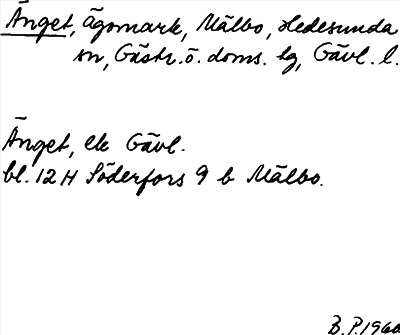 Änget, Ägomark, Mälbo, Hedesunda
sn, Gästr. ö. doms. lg, Gävl. l.
Änget, ek Gävl.
bl. 12 H Söderfors 9 b Mälbo.
B.P. 1960